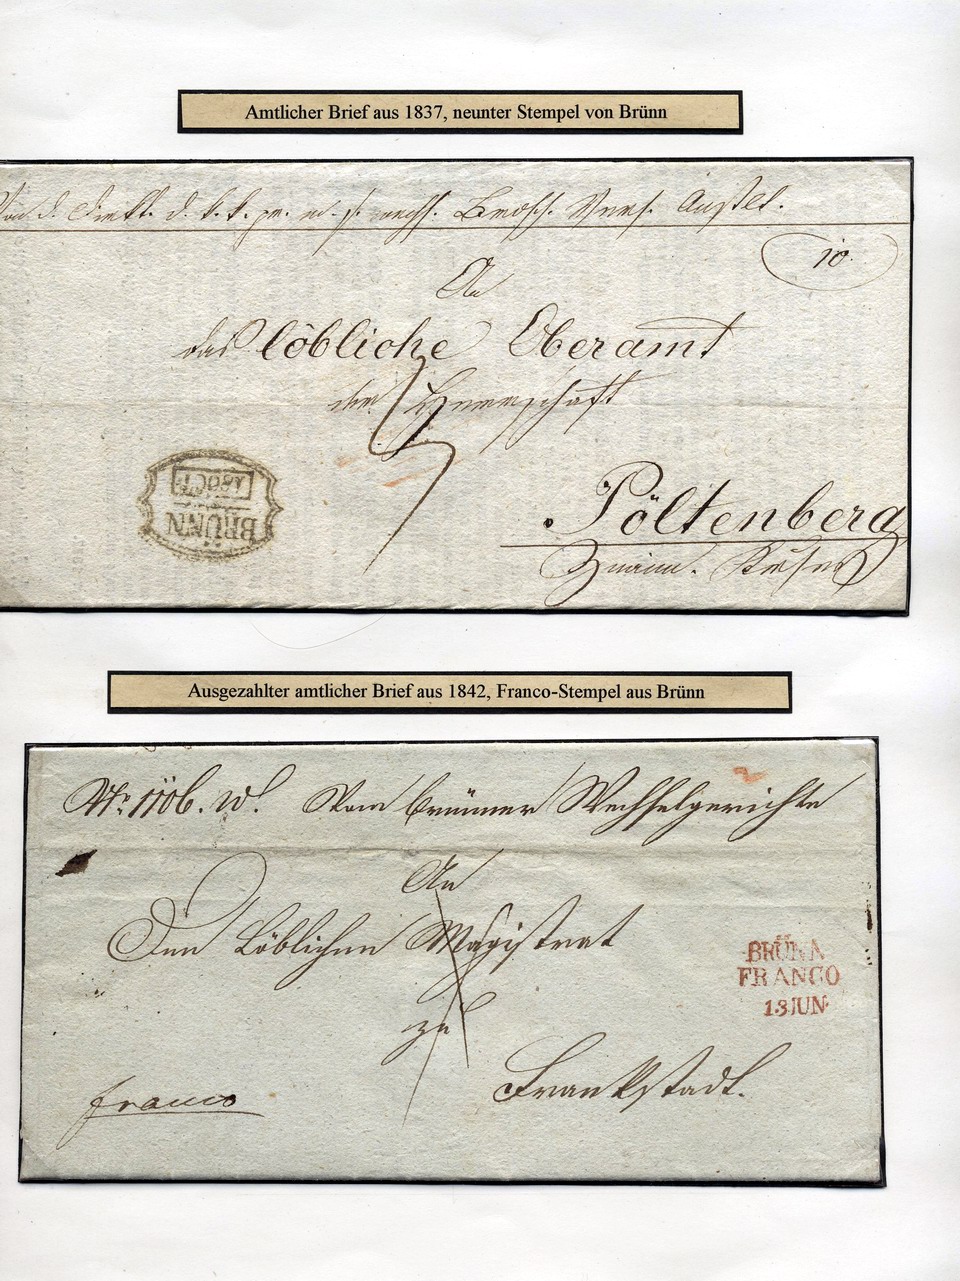 Amtlicher Brief aus 1837, neunter Stempel von Brünn
10.
An
das löbliche Oberamt
der Herrschaft
Pöltenberg
BRÜNN
Ausgezahlter amtlicher Brief aus 1842, Franco-Stempel aus Brünn
Vom Brünner Wechselgerichte
An
Den Löblichen Magistrat
zu
Frankstadt.
BRÜNN
FRANCO
13 JUN
franco